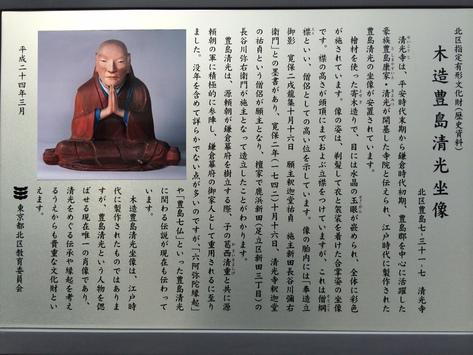 北区指定有形文化財（歴史資料）
木造豊島清光坐像
北区豊島七-三十一-七　清光寺
清光寺は、平安時代末期から鎌倉時代初期、豊島郡を中心に活躍した
豪族豊島康家・清光が開基した寺院と伝えられ、江戸時代に製作された
豊島清光の坐像が安置されています。
檜材を使った寄木造りで、目には水晶の玉眼が嵌められ、全体に彩色
が施されています。像の姿は、剃髪して衣と袈裟を着けた合掌姿の坐像
です。襟の高さが頭頂にまでおよぶ立襟をつけていますが、これは僧綱
襟といい、僧侶としての高い位を示しています。像の胎内には「奉造立
御影　寛保二戌龍集十月十六日　願主釈迦堂祐貞　施主新田長谷川弥右
衛門」との墨書があり、寛保二年（一七四二）十月十六日、清光寺釈迦堂
の祐貞という僧侶が願主となり、檀家で鹿浜新田（足立区新田三丁目）の
長谷川弥右衛門が施主となって造立したことがわかります。
豊島清光は、源頼朝が鎌倉幕府を樹立する際、子の葛西清重と共に源
頼朝の軍に積極的に参陣し、鎌倉幕府の御家人として重用されるに至り
ました。没年を含めて詳らかでない点が多いのですが、「六阿弥陀縁起」
や「豊島七仏」といった豊島清光
に関わる伝説が現在も伝わって
います。
木造豊島清光坐像は、江戸時
代に製作されたものではありま
すが、豊島清光という人物を偲
ばせる現在唯一の肖像であり、
清光をめぐる伝承や縁起を考え
るうえからも貴重な文化財とい
えます。
平成二十四年三月
東京都北区教育委員会